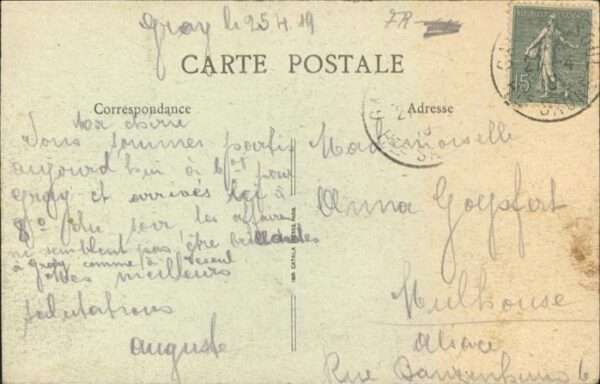 Gray le 25 4 19
FR
CARTE POSTALE
Correspondance
Adresse
15
Ma chère
Nous sommes partis
aujourd'hui à 6h pour
Gray et arrivés ici à
8h du soir les affaires
ne semblent pas être brillantes
à Gray comme à Vesoul
Mes meilleurs
salutations
Auguste
Mademoiselle
Anna Goepfert
Mulhouse
Alsace
Rue
IMP. CATALA FRERES, PARIS